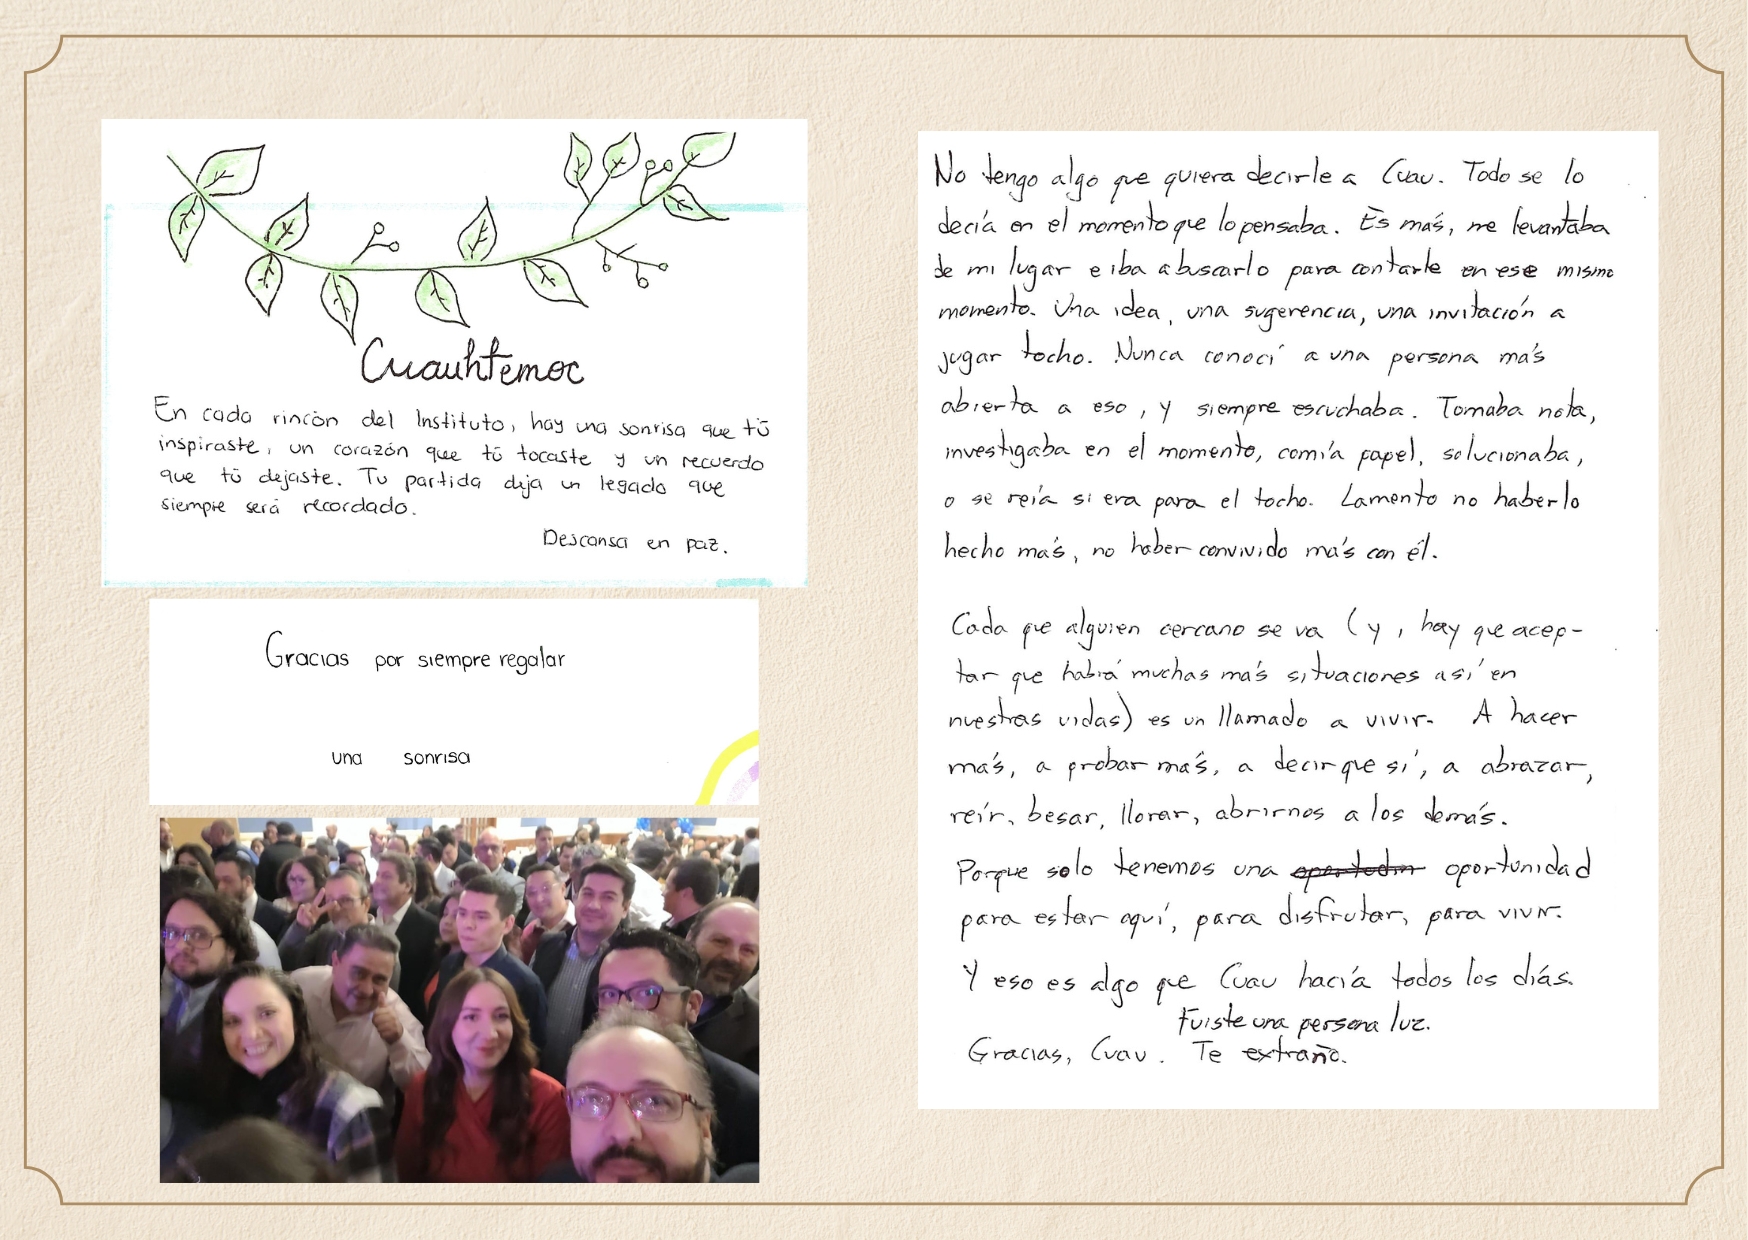 Cuauhtemoc
En cada rincón del Instituto, hay una sonrisa que tú
inspiraste, un corazón que tú tocaste y un recuerdo
que tú dejaste. Tu partida deja un legado que
siempre será recordado.
Descansa en paz.
Gracias por siempre regalar
una sonrisa
No tengo algo que quiera decirle a Cuau. Todo se lo
decía en el momento que lo pensaba. Es más, me levantaba
de mi lugar e iba a buscarlo para contarle en ese mismo
momento. Una idea, una sugerencia, una invitación a
jugar tocho. Nunca conocí a una persona más
abierta a eso, y siempre escuchaba. Tomaba nota,
investigaba en el momento, comía papel, solucionaba,
o se reía si era para el tocho. Lamento no haberlo
hecho más, no haber convivido más con él.
Cada que alguien cercano se va (y, hay que acep-
tar que habrá muchas más situaciones así en
nuestras vidas) es un llamado a vivir. A hacer
más, a probar más, a decir que sí, a abrazar,
reír, besar, llorar, abrirnos a los demás.
Porque solo tenemos una oportunidad
para estar aquí, para disfrutar, para vivir.
Y eso es algo que Cuau hacía todos los días.
Fuiste una persona luz.
Gracias, Cuau. Te extraño.